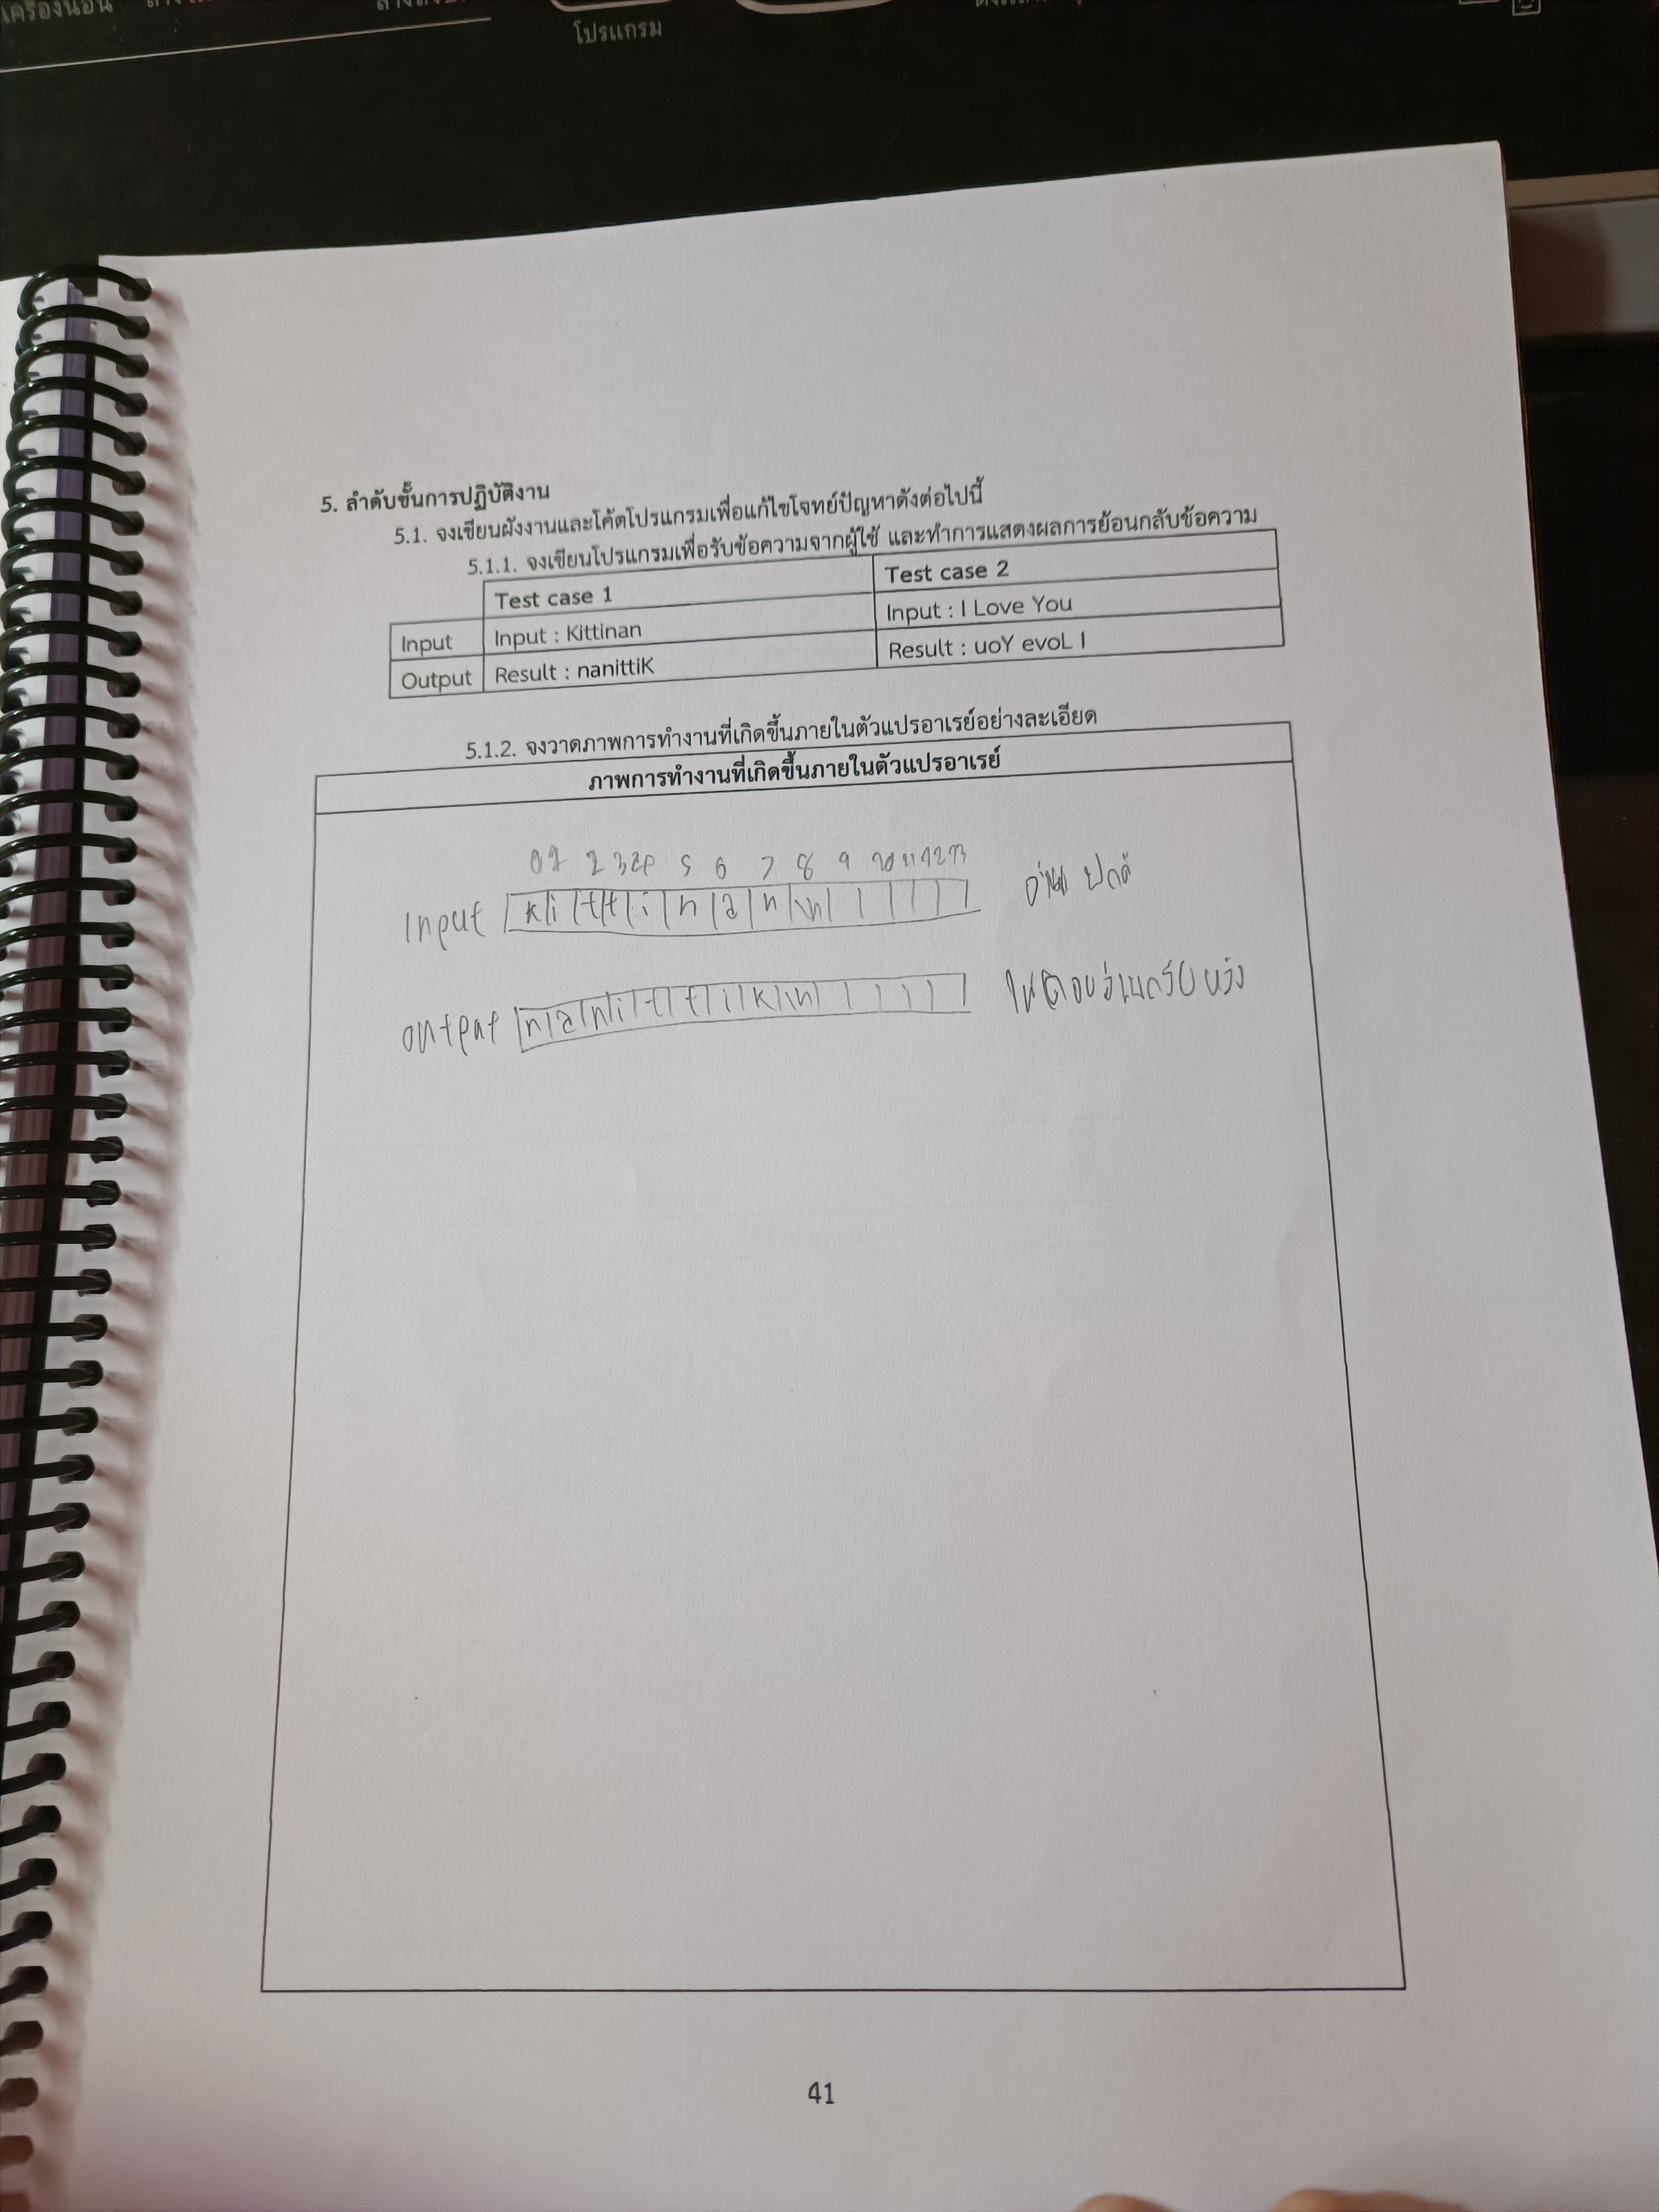 เครื่องนอน
โปรแกรม
5. ลำดับขั้นการปฏิบัติงาน
5.1. จงเขียนผังงานและโค้ดโปรแกรมเพื่อแก้ไขโจทย์ปัญหาดังต่อไปนี้
5.1.1. จงเขียนโปรแกรมเพื่อรับข้อความจากผู้ใช้ และทำการแสดงผลการย้อนกลับข้อความ
Test case 1 Test case 2
Input Input : Kittinan Input : I Love You
Output Result : nanittiK Result : uoY evoL I
5.1.2. จงวาดภาพการทำงานที่เกิดขึ้นภายในตัวแปรอาเรย์อย่างละเอียด
ภาพการทำงานที่เกิดขึ้นภายในตัวแปรอาเรย์
0 1 2 3 4 5 6 7 8 9 10 11 12 13
Input K i t t i n a n \n อ่าน ปกติ
output n a n i t t i k \n
41